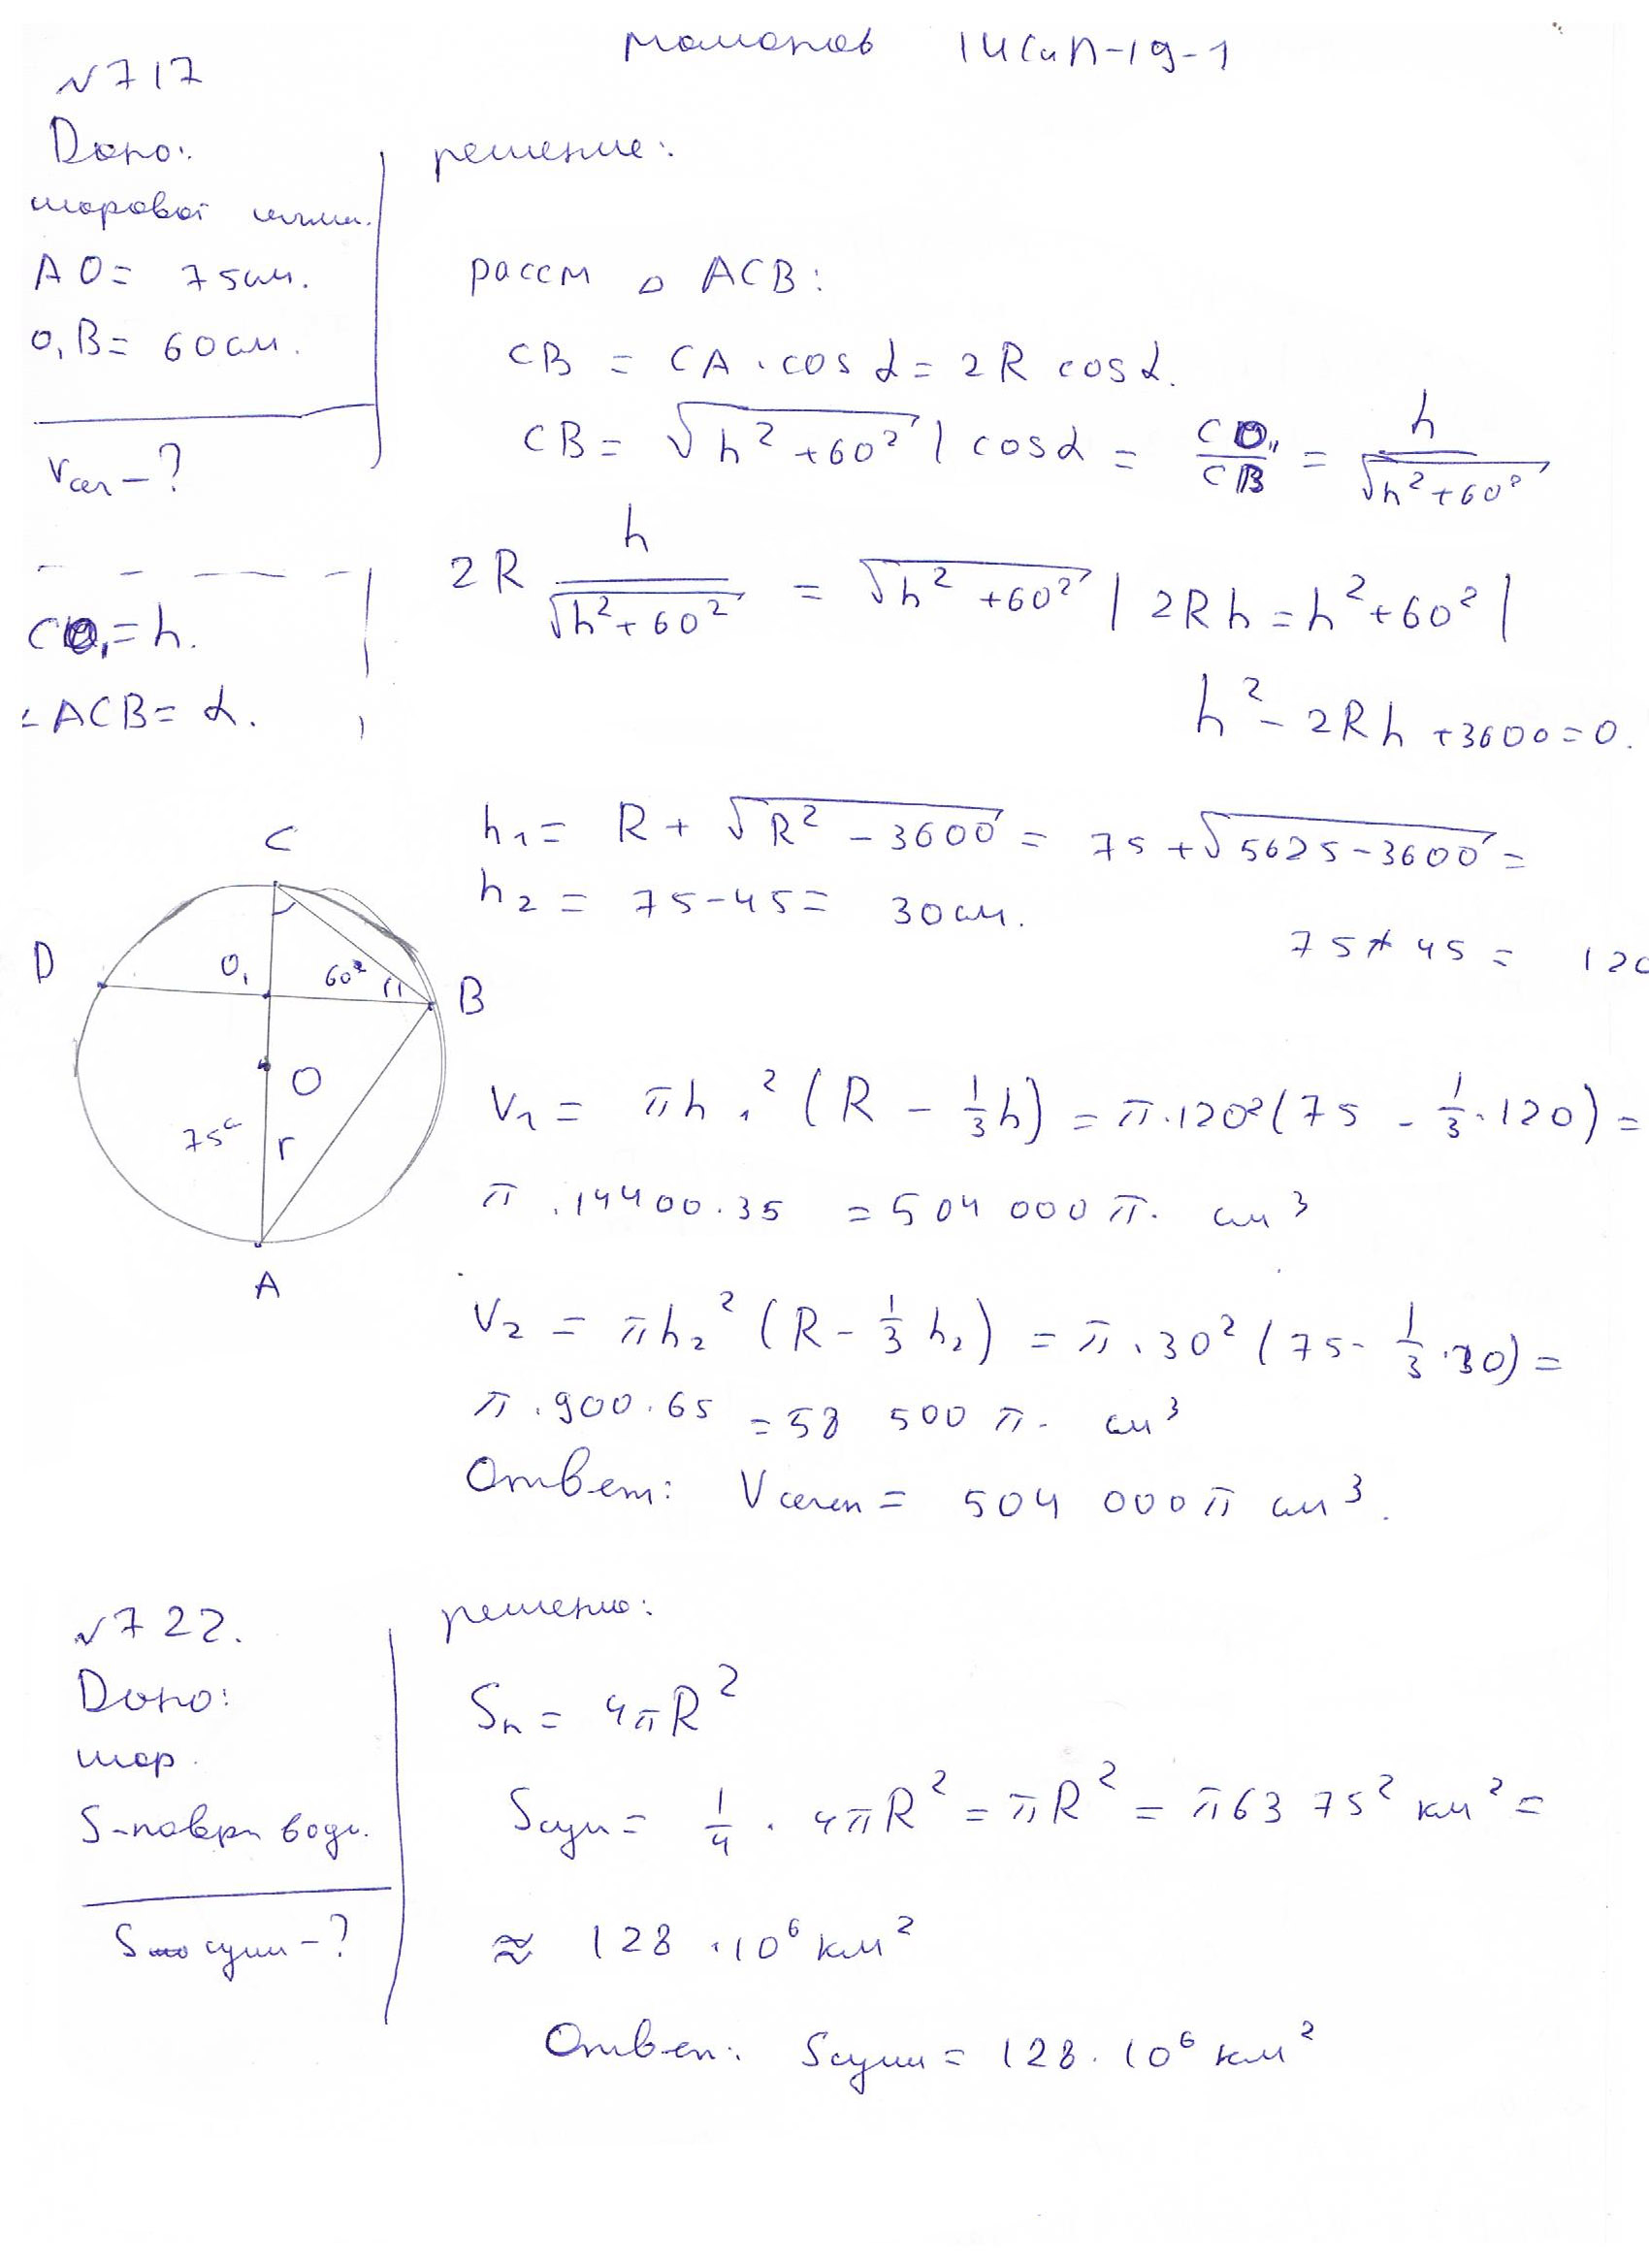 Мамонов 1ИСиП-19-1
№717
Дано:
шаровой сегм.
AO = 75см.
O₁B = 60см.
Vсег - ?
CO₁ = h.
∠ACB = α.
решение:
рассм △ ACB:
CB = CA · cos α = 2R cos α.
CB = √(h² + 60²) | cos α = CO₁/CB = h/√(h² + 60²)
2R h/√(h² + 60²) = √(h² + 60²) | 2Rh = h² + 60² |
h² - 2Rh + 3600 = 0.
h₁ = R + √(R² - 3600) = 75 + √(5625 - 3600) =
75 + 45 = 120
h₂ = 75 - 45 = 30см.
C
D
O₁
60²
B
O
75с
r
A
V₁ = πh₁² (R - 1/3 h) = π · 120² (75 - 1/3 · 120) =
π · 14400 · 35 = 504 000 π. см³
V₂ = πh₂² (R - 1/3 h₂) = π · 30² (75 - 1/3 · 30) =
π · 900 · 65 = 58 500 π. см³
Ответ: Vсегм = 504 000 π см³.
№722.
Дано:
шар.
S-поверх воды.
S суши - ?
решению:
Sп = 4πR²
Sсуши = 1/4 · 4πR² = πR² = π 63 75² км² =
≈ 128 · 10⁶ км²
Ответ: Sсуши = 128 · 10⁶ км²